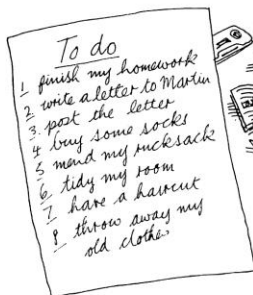 To do
1 finish my homework
2 write a letter to Martin
3. post the letter
4 buy some socks
5 mend my rucksack
6 tidy my room
7 have a haircut
8 throw away my
old clothes